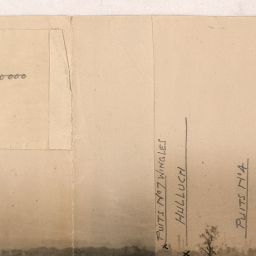 0000
PUITS No 7 WINGLES
HULLUCH
PUITS No 4